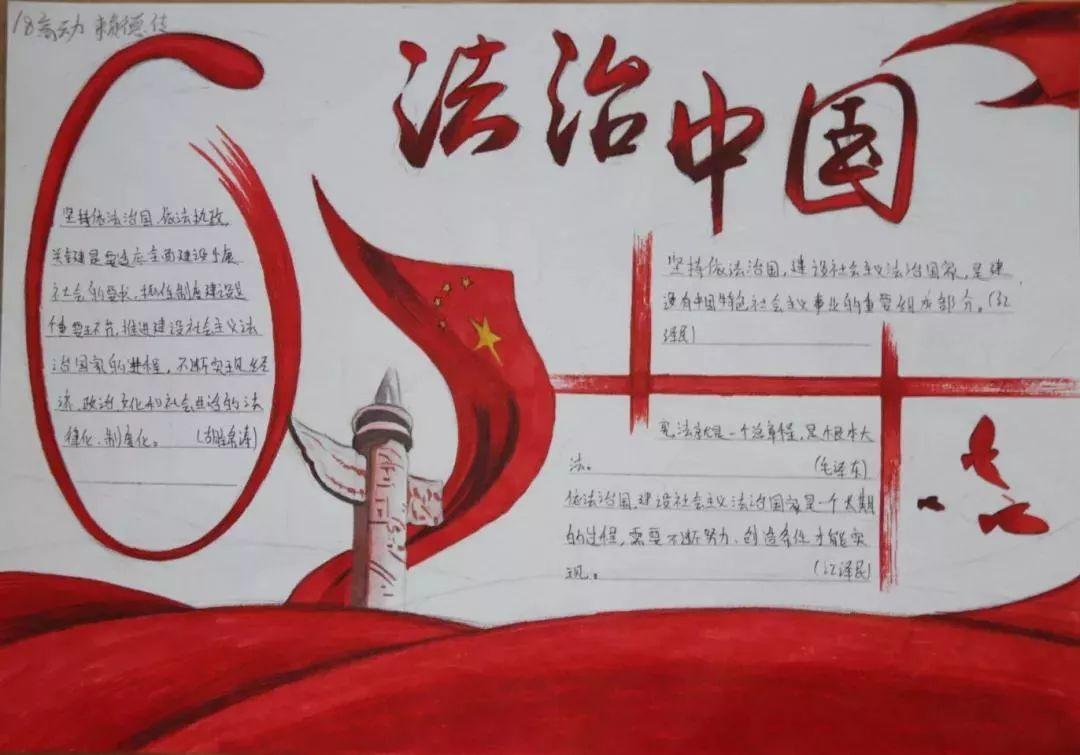 18高动 赖德传
法治中国
坚持依法治国、依法执政，
关键是要适应全面建设小康
社会的要求，抓住制度建设是
重要环节，推进建设社会主义法
治国家的进程，不断实现经
济、政治、文化和社会生活的法
律化、制度化。 (胡锦涛)
坚持依法治国，建设社会主义法治国家，是建
设有中国特色社会主义事业的重要组成部分。(江
泽民)
宪法就是一个总章程，是个根本大
法。 (毛泽东)
依法治国，建设社会主义法治国家是一个长期
的过程，需要不断努力、创造条件才能实
现。 (江泽民)